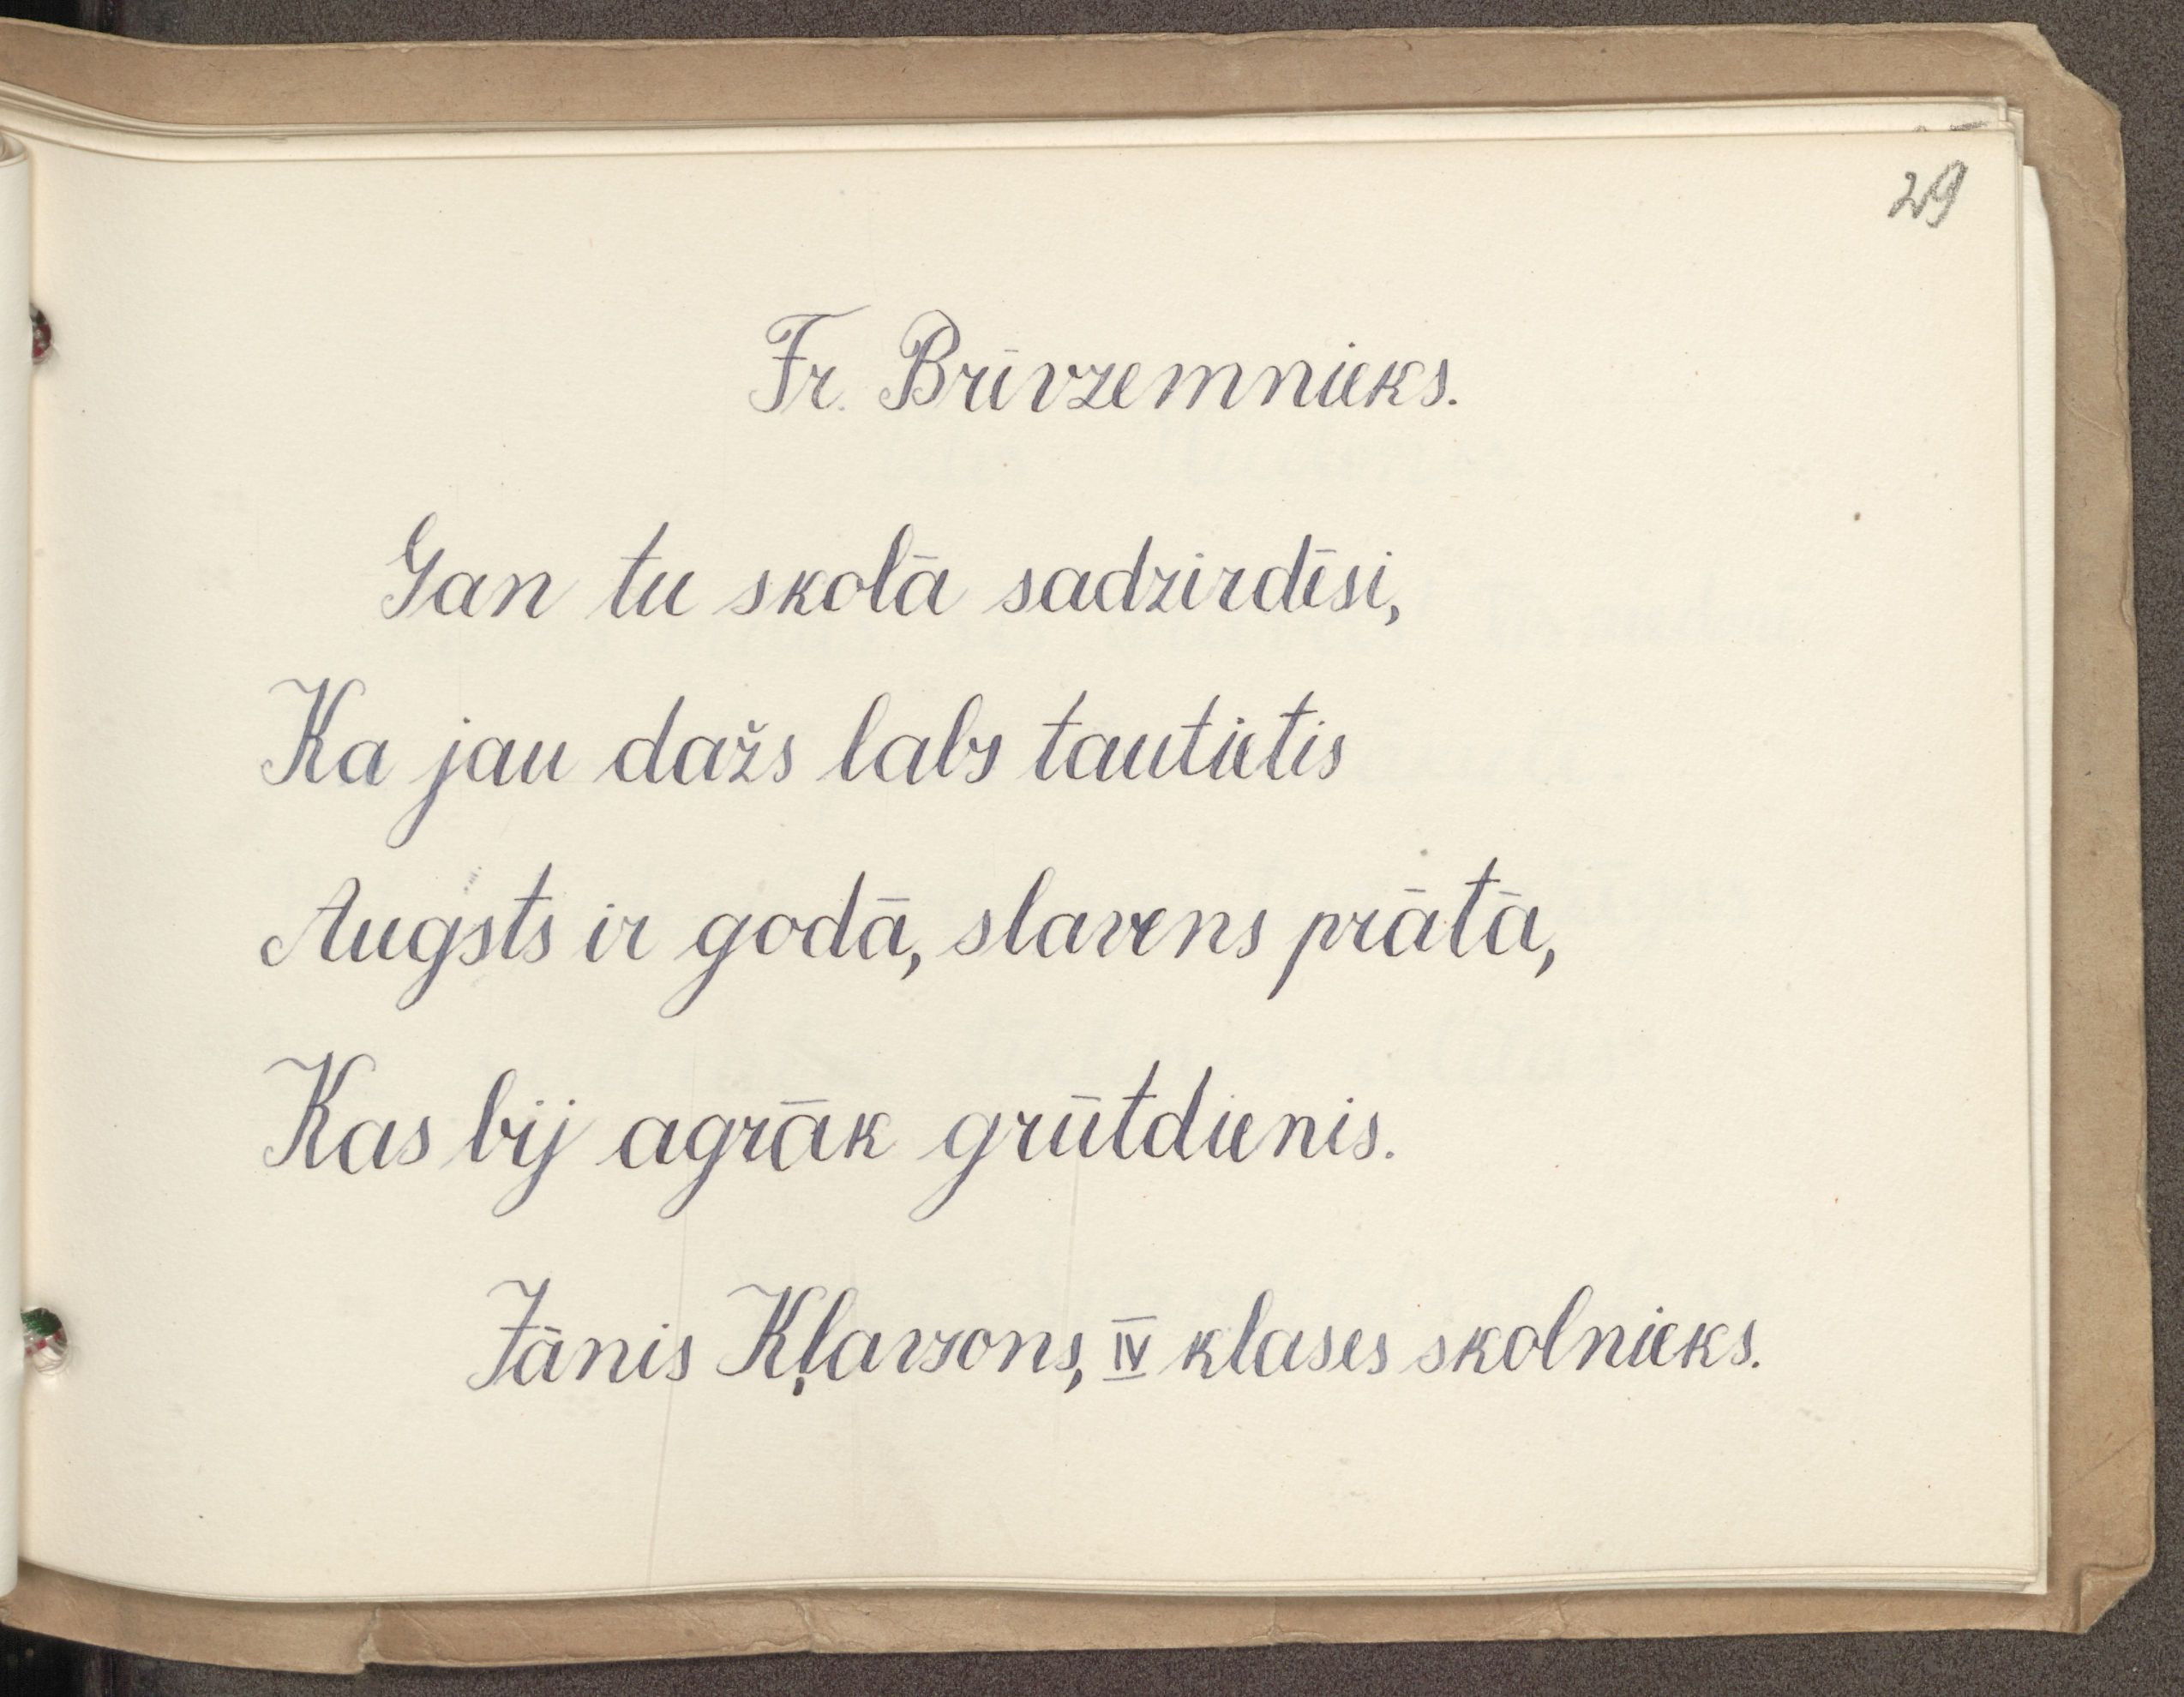 29
Fr. Brīvzemnieks.
Gan tu skolā sadzirdēsi,
Ka jau dažs labs tautietis
Augsts ir godā, slavens prātā,
Kas bij agrāk grūtdienis.
Jānis Kļavsons, IV klases skolnieks.